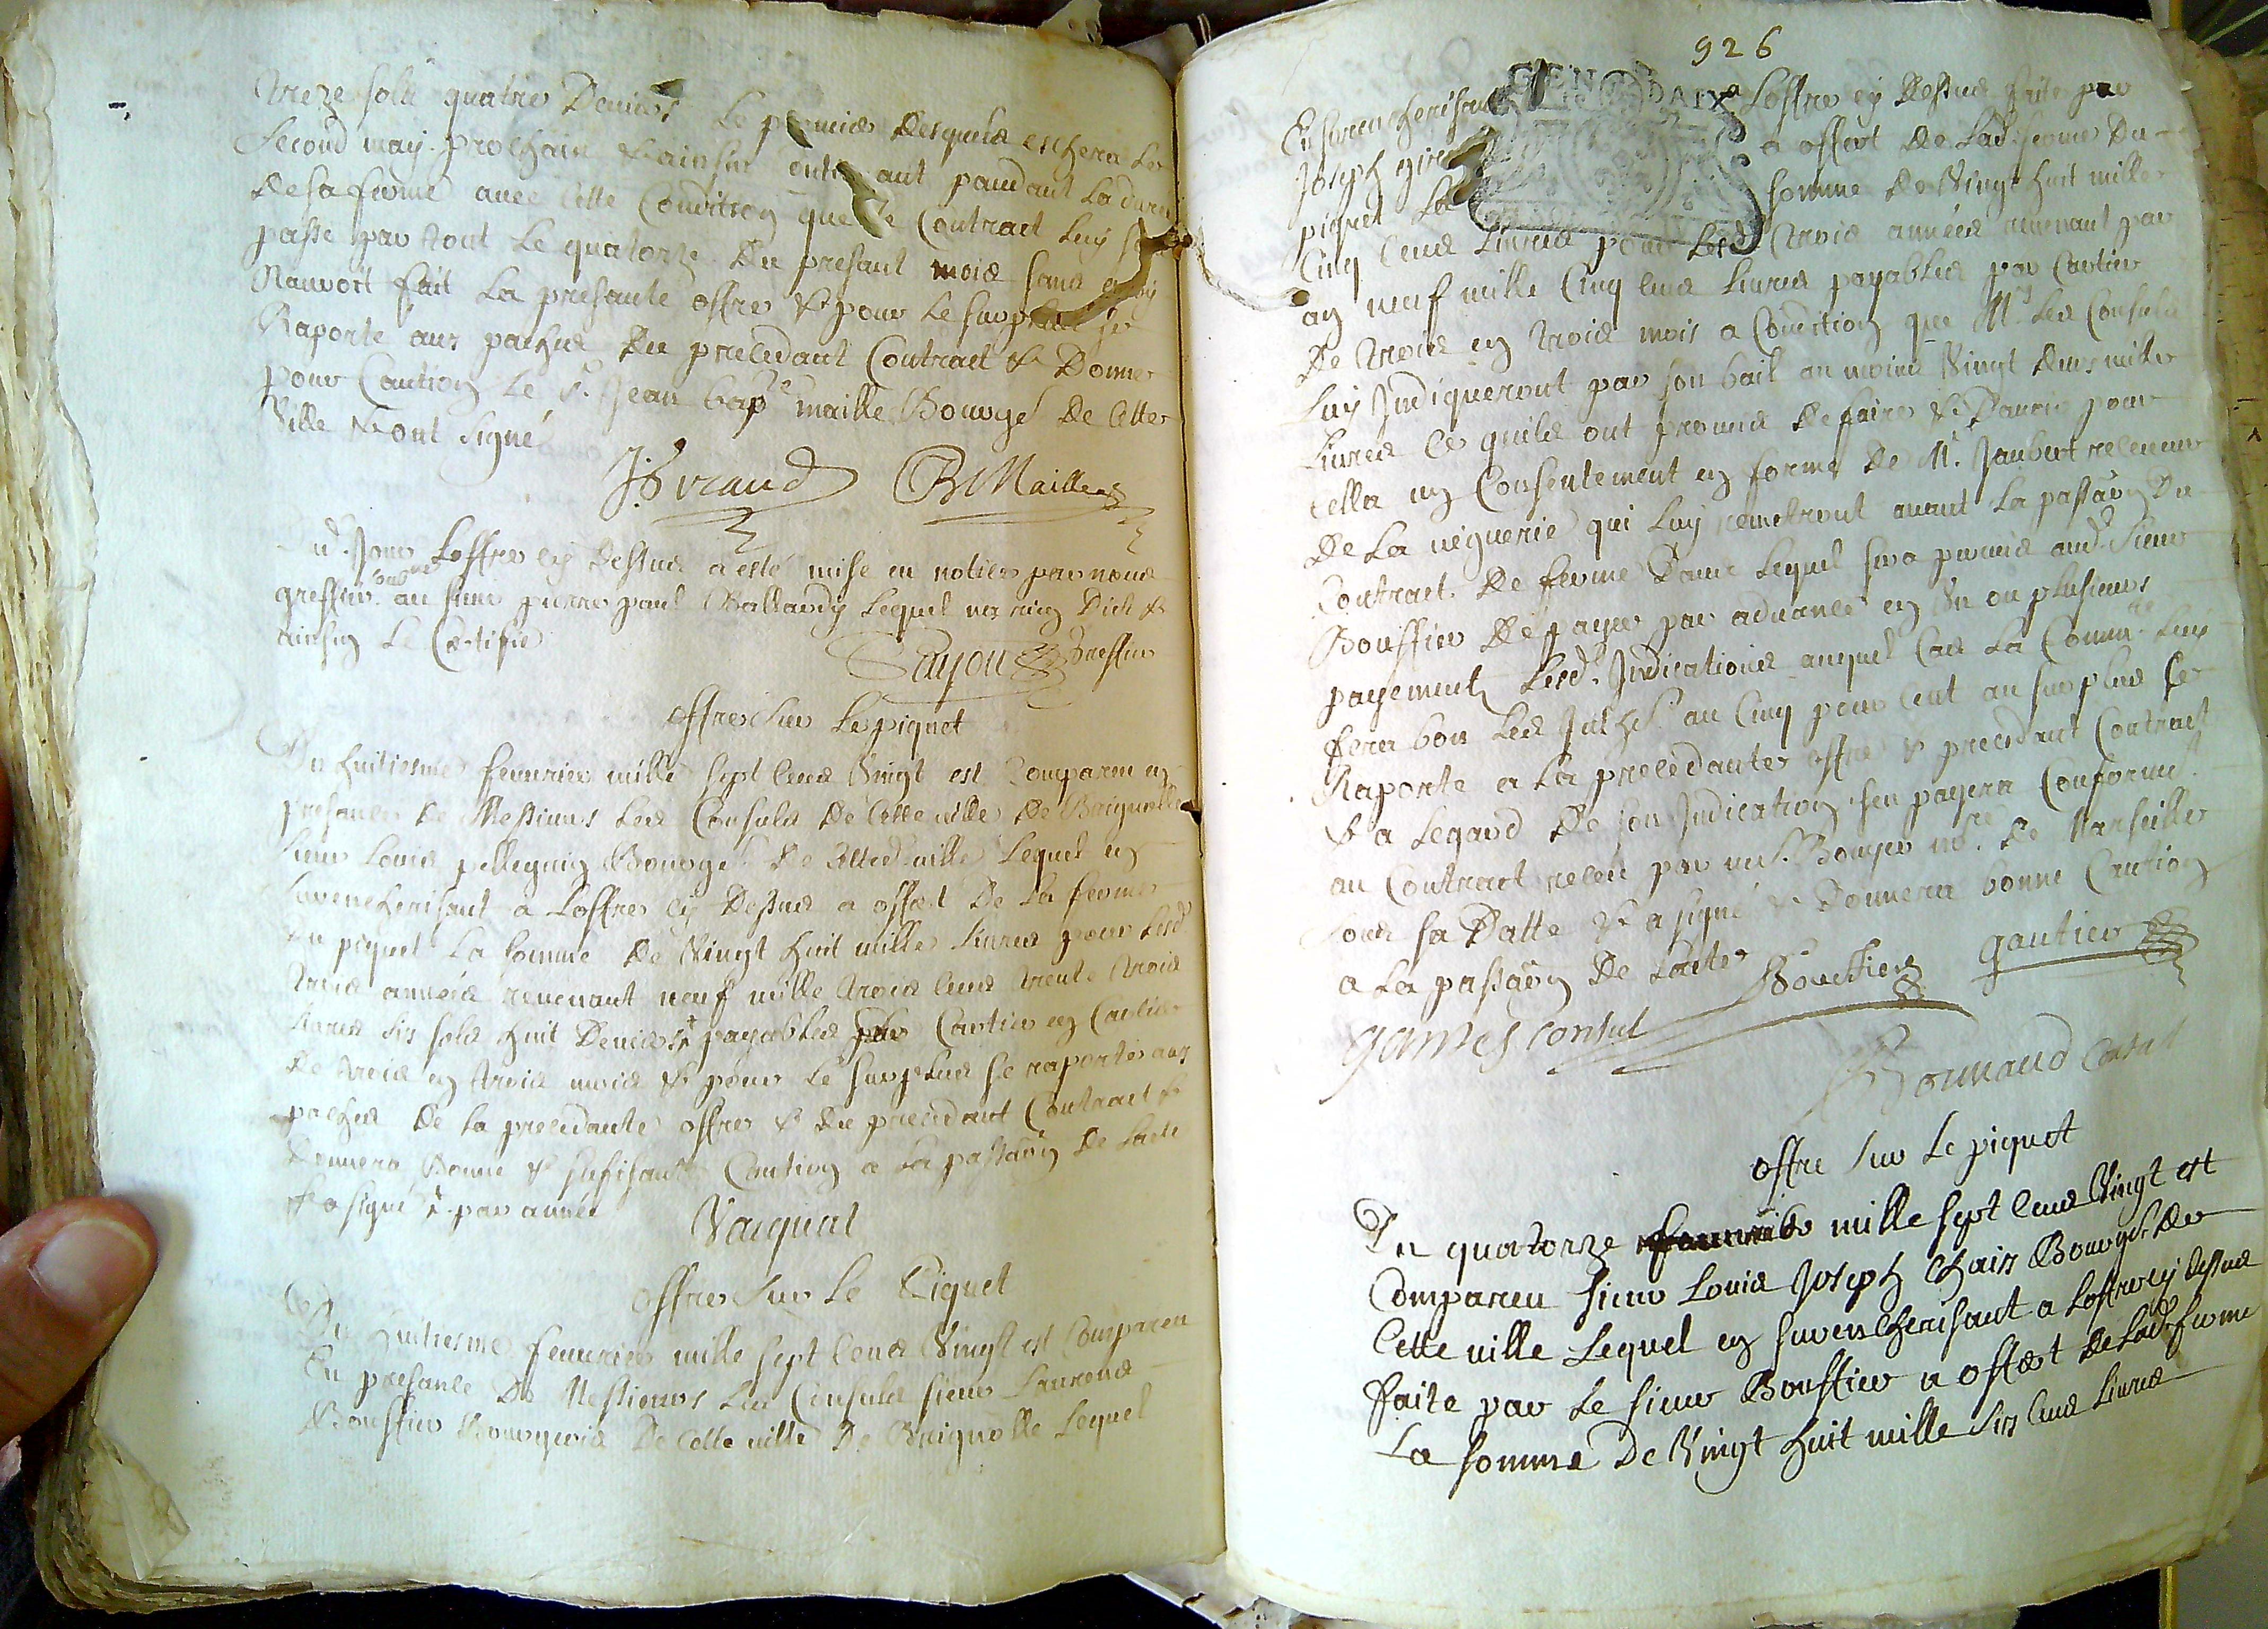 treze sols quatre deniers le premier desquels eschera le
second may prochain & ainsin continuant pandant la duree
de sa ferme avec cette condition que le contract luy sera
passé par tout le quatorze du presant mois sans quoy
n'auroit fait la presante offre & pour le surplus se
raporte aux paches du precedant contract & donne
pour caution le sr. Jean bapte maille Bourge de cette
ville & ont signé
JBraud BMaille
Dud. jour loffre cy dessus a esté mise en notice par nous
greffier soubne au sieur pierre paul Ballardy lequel na rien dict &
ainsin le certifie
Sayou greffier
offre sur le piquet
Du huitiesme fevrier mille sept cens vingt est comparu en
presance de Messieurs les Consuls de cette ville de Brignolle
sieur Louis pellegrin Bourge de cette ville lequel en
surencherisant a loffre cy dessus a offert de la ferme
du piquet la somme de vingt huit mille livres pour lesd
trois années revenant neuf mille trois cens trente trois
livres six sols huit deniers + payables par cartier en cartier
de trois en trois mois & pour le surplus se raporte aux
paches de la precedante offre & du precedant contract &
donnera bonne & sufisante caution a la passaon de lacte
& a signé + par année
offre sur le Piquet
Du huitiesme fevrier mille sept cens vingt est comparu
En presance de Messieurs les Consuls sieur Laurens
Bouffier Bourgeois de cette ville de Brignolle lequel
926
GEN DAIX
En surencherisant a loffre cy dessus faite par
Joseph a offert de lad ferme du
piquet la somme de vingt huit mille
cinq cens livres pour lesd trois années revenant par
an neuf mille cinq cens livres payables par cartier
de trois en trois mois a condition que Mrs les Consuls
luy indiqueront par son bail au moins vingt deux mille
livres ce quils ont promis de faire & d'avoir pour
cella un consentement en forme de Mr. Jaubert receveur
de la viguerie qui luy remetront avant la passaon du
contract de ferme dans lequel sera permis aud. sieur
Bouffier de payer par advance en un ou plusieurs
payements lesd. indications auquel cas la Commte luy
fera bon les au cinq pour cent au surplus se
raporte a la precedante offre & precedant contract
& a legard de son indication sen payera conforme
au contract receu par me Boyer nore de Marseille
sous sa datte & a signé & donnera bonne caution
a la passaon de lacte
Bouffier gautier
consul
consul
offre sur le piquet
Du quatorze mille sept cens vingt est
comparu sieur Louis Joseph Chaix Bourge de
cette ville lequel en surencherisant a loffre cy dessus
faite par le sieur Bouffier a offert de lad. ferme
la somme de vingt huit mille six cens livres